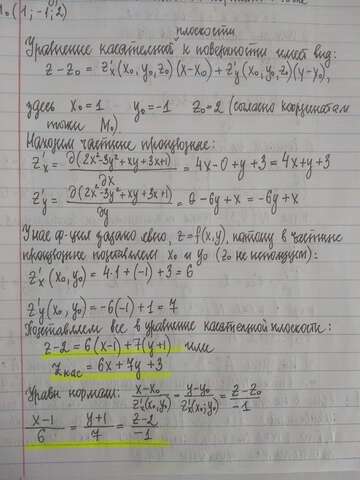 M₀(1; -1; 2)
плоскости
Уравнение касательной к поверхности имеет вид:
z - z₀ = z'ₓ(x₀, y₀, z₀)(x - x₀) + z'ᵧ(x₀, y₀, z₀)(y - y₀),
здесь x₀ = 1 y₀ = -1 z₀ = 2 (согласно координатам
точки M₀)
Находим частные производные:
z'ₓ = ∂(2x² - 3y² + xy + 3x + 1)/∂x = 4x - 0 + y + 3 = 4x + y + 3
z'ᵧ = ∂(2x² - 3y² + xy + 3x + 1)/∂y = 0 - 6y + x = -6y + x
У нас ф-ция задана явно, z = f(x, y), потому в частные
производные подставляем x₀ и y₀ (z₀ не используем):
z'ₓ(x₀, y₀) = 4·1 + (-1) + 3 = 6
z'ᵧ(x₀, y₀) = -6(-1) + 1 = 7
Подставляем все в уравнение касательной плоскости:
z - 2 = 6(x - 1) + 7(y + 1) или
z кас = 6x + 7y + 3
Уравн нормали: (x - x₀)/z'ₓ(x₀, y₀) = (y - y₀)/z'ᵧ(x₀; y₀) = (z - z₀)/-1
(x - 1)/6 = (y + 1)/7 = (z - 2)/-1